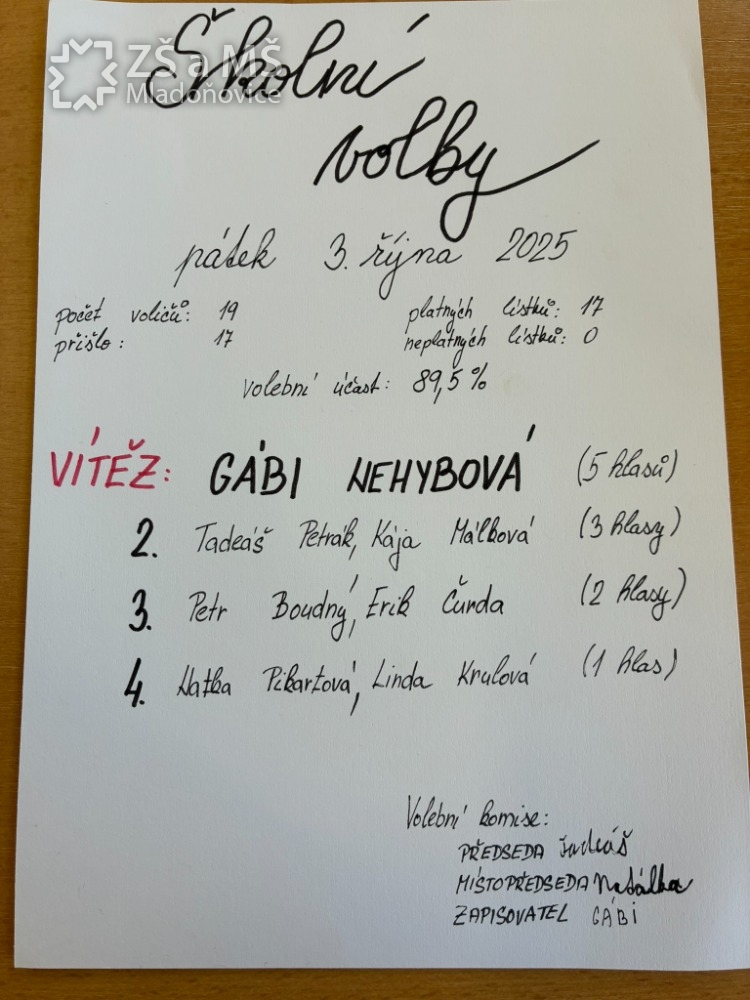 ZŠ a MŠ
Mladoňovice
Školní
volby
pátek 3. října 2025
počet voličů: 19
přišlo: 17
platných lístků: 17
neplatných lístků: 0
volební účast: 89,5%
VÍTĚZ: GÁBI NEHYBOVÁ (5 hlasů)
2. Tadeáš Petrák, Kája Málková (3 hlasy)
3. Petr Boudný, Erik Čurda (2 hlasy)
4. Natka Pikartová, Linda Krulová (1 hlas)
Volební komise:
PŘEDSEDA Tadeáš
MÍSTOPŘEDSEDA Natálka
ZAPISOVATEL GÁBI